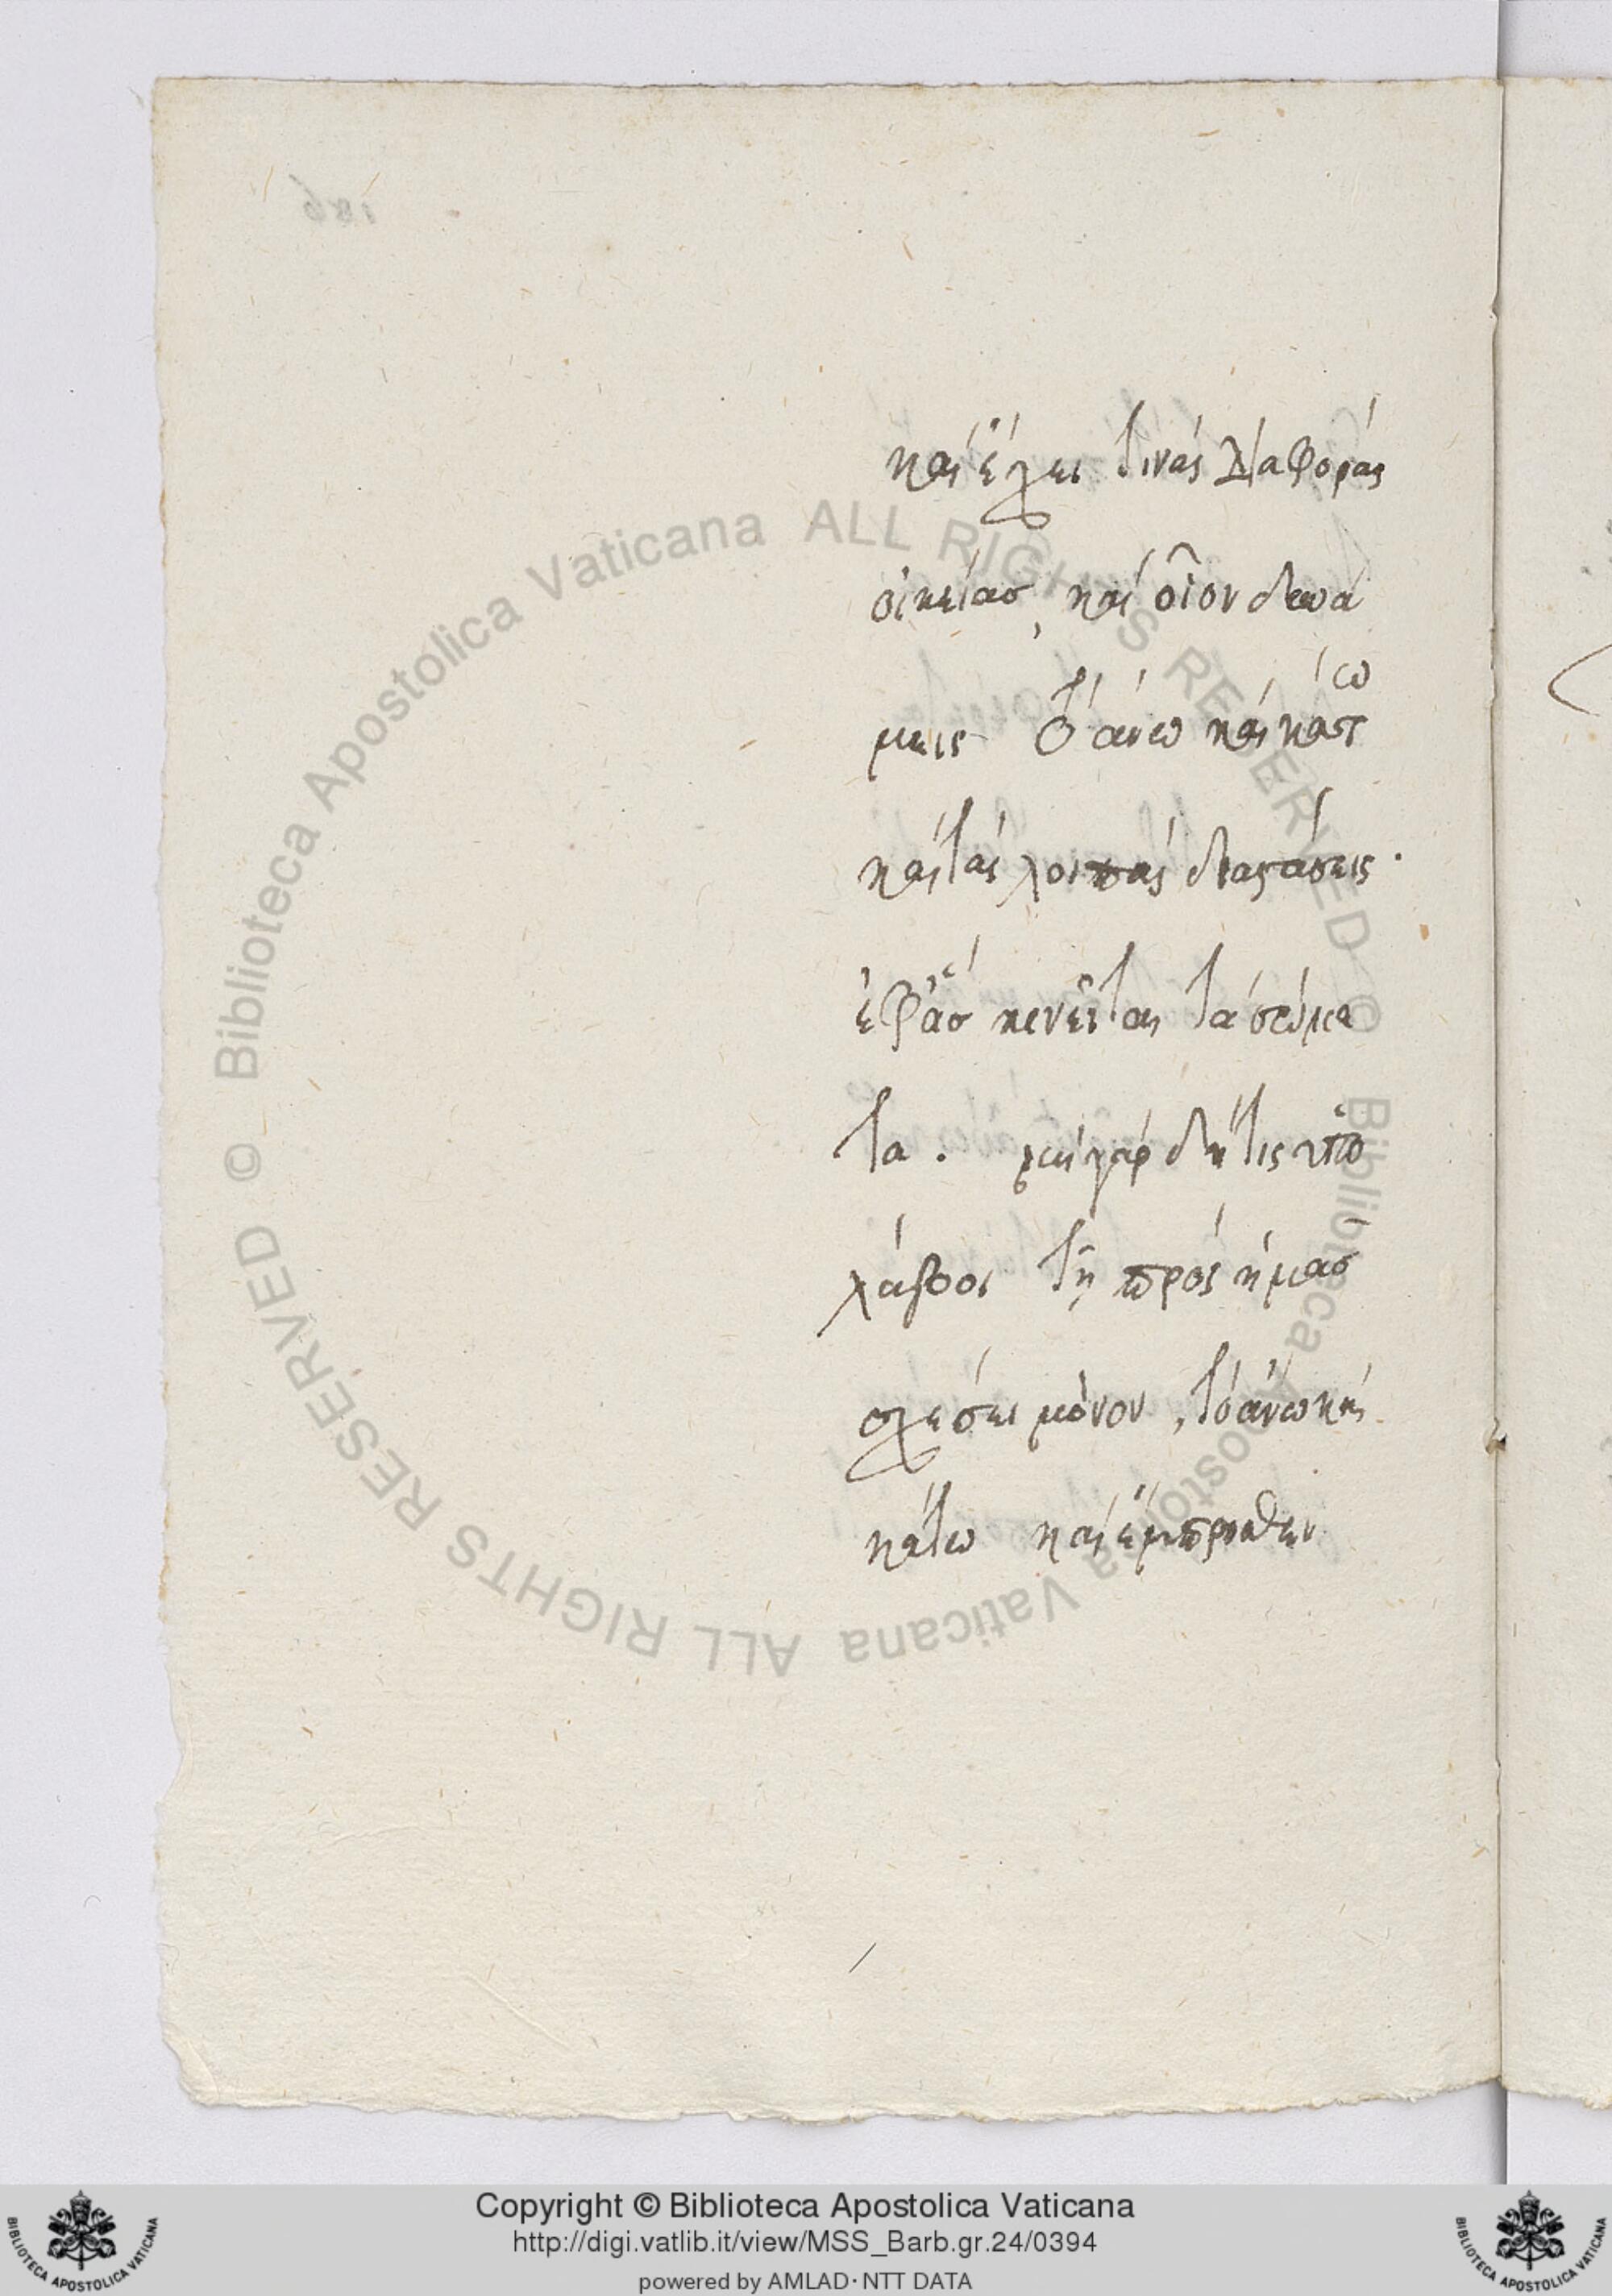 καὶ ἔχει τινὰς διαφορὰς
οἰκείας, καὶ οἷον δυνά
μεις τὸ ἄνω καὶ κάτω
καὶ τὰς λοιπὰς διαστάσεις·
ἐφ' ἃς κινεῖται τὰ σώμα
τα. μὴ γὰρ δή τις ὑπο
λάβοι τῇ πρὸς ἡμᾶς
σχέσει μόνον, τὸ ἄνω καὶ
κάτω καὶ ἔμπροσθεν
186
© Biblioteca Apostolica Vaticana ALL RIGHTS RESERVED © Biblioteca Apostolica Vaticana ALL RIGHTS RESERVED
Copyright © Biblioteca Apostolica Vaticana
http://digi.vatlib.it/view/MSS_Barb.gr.24/0394
powered by AMLAD·NTT DATA
BIBLIOTECA APOSTOLICA VATICANA
BIBLIOTECA APOSTOLICA VATICANA